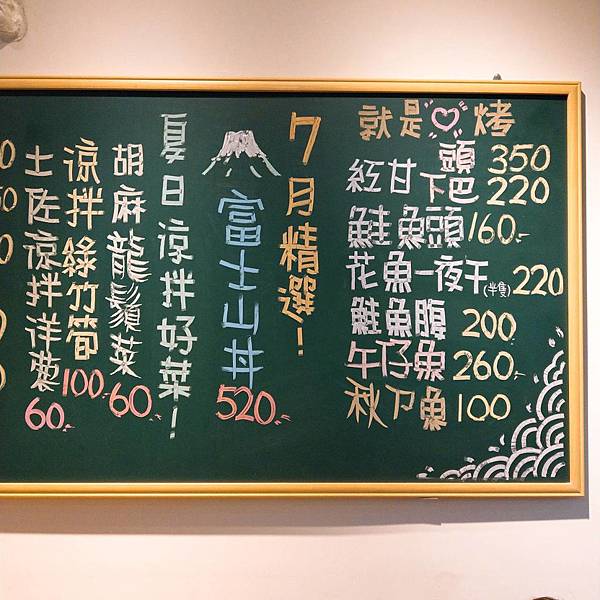 就是♡烤
紅甘 頭 350
下巴 220
鮭魚頭 160.-
花魚一夜干(半隻) 220
鮭魚腹 200
午仔魚 260.-
秋刀魚 100
7月精選!
富士山丼 520.-
夏日涼拌好菜!
胡麻龍鬚菜 60.-
涼拌綠竹筍 100.-
土佐涼拌洋蔥 60.-